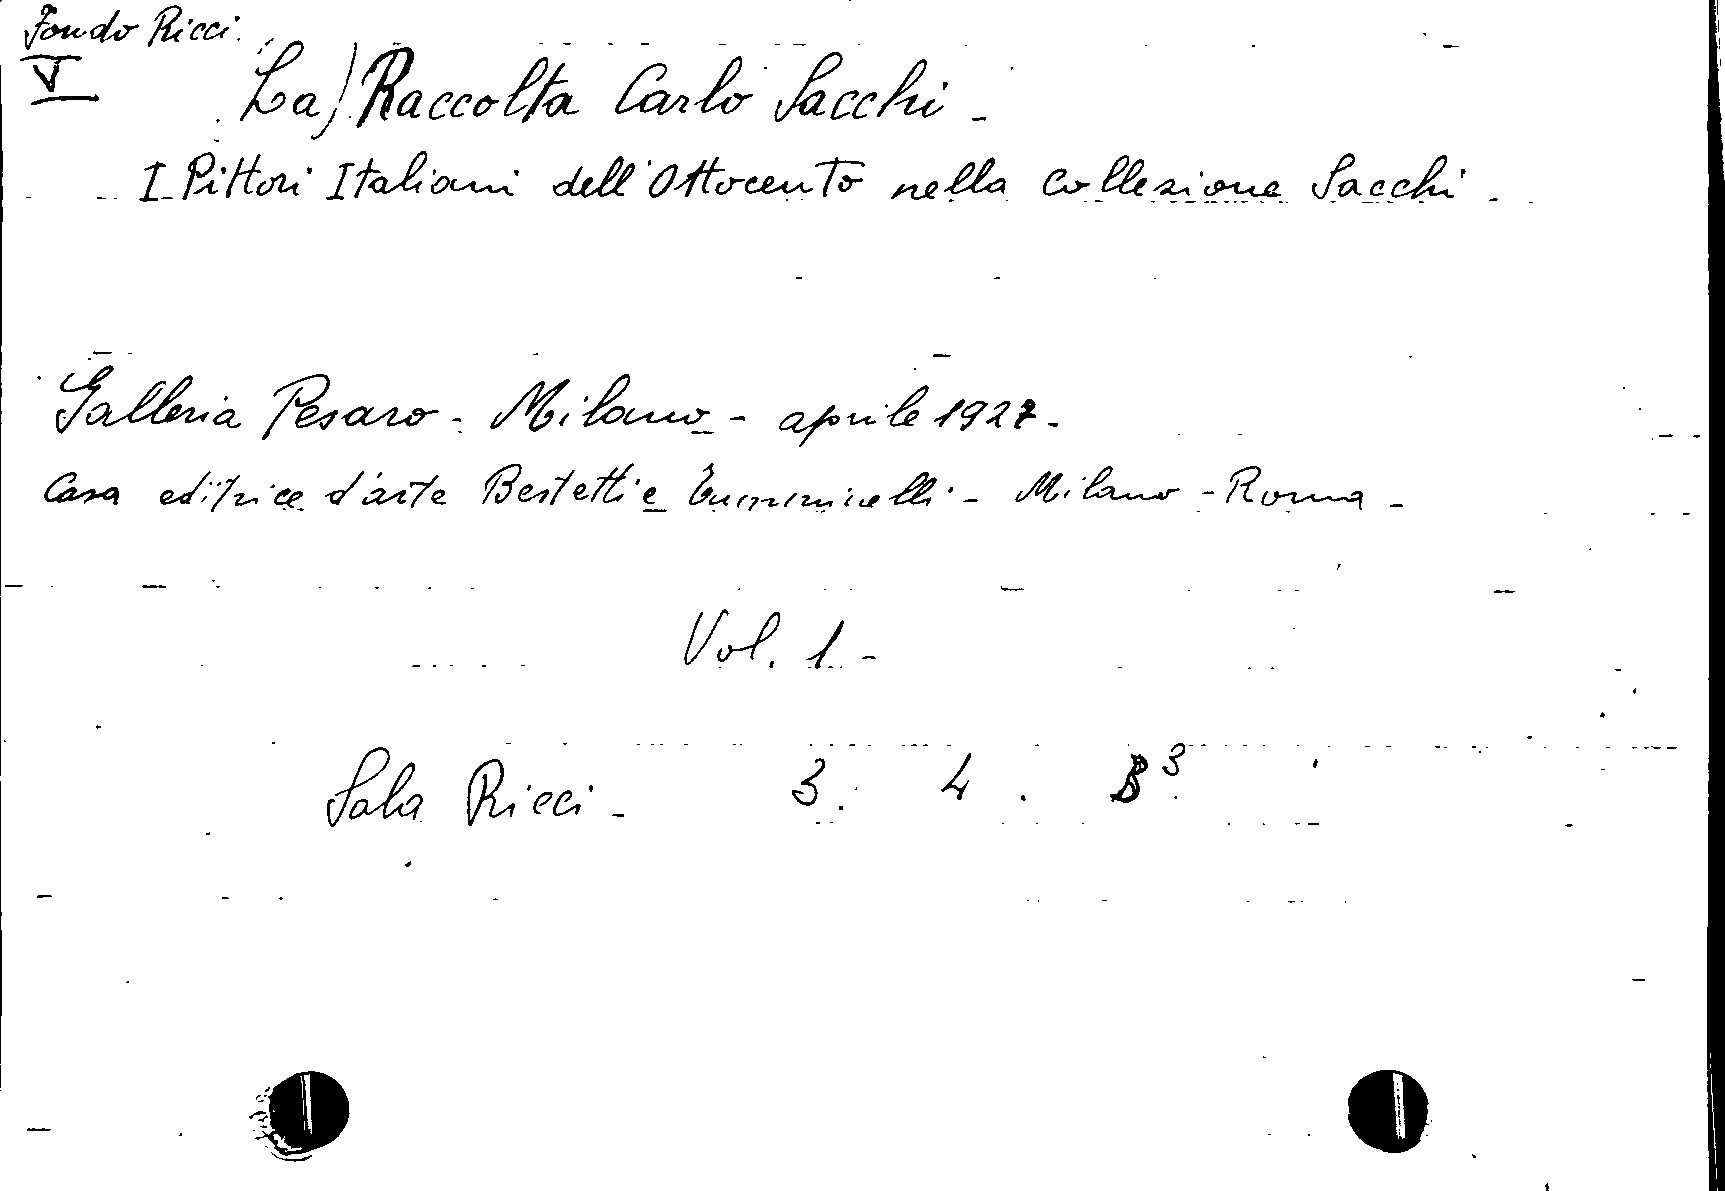 Fondo Ricci.
V
La) Raccolta Carlo Sacchi -
I Pittori Italiani dell'Ottocento nella collezione Sacchi.
Galleria Pesaro - Milano - aprile 1927 -
Casa editrice d'arte Bestetti e Tumminelli - Milano - Roma -
Vol. 1 -
Sala Ricci - 3. 4. B3